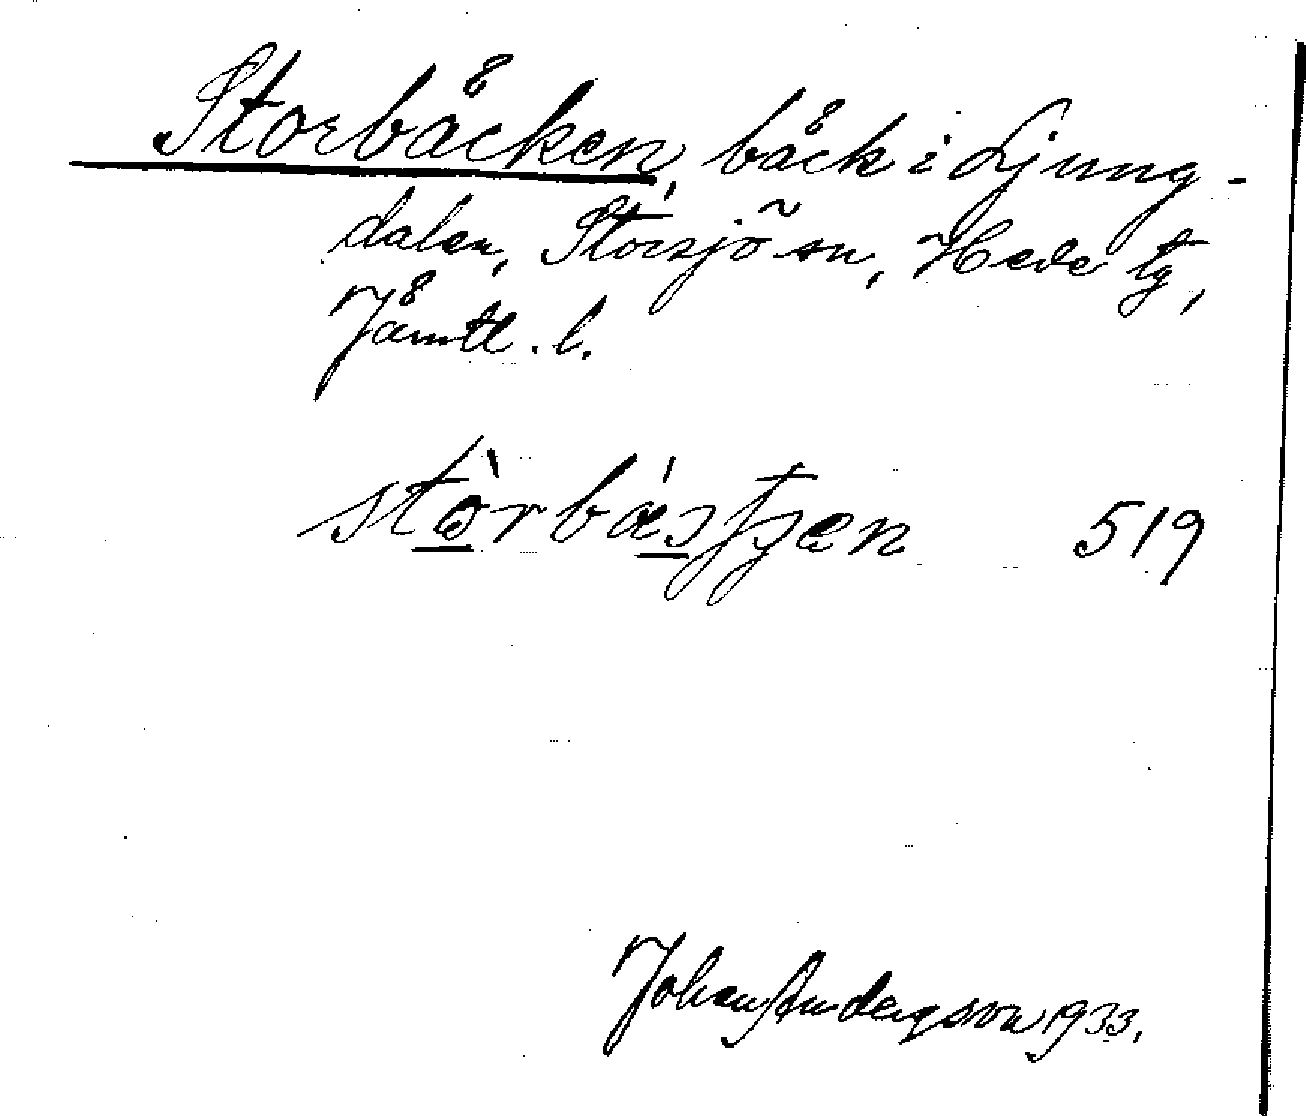 Storbäcken, bäck i Ljung-
dalen, Storsjö sn, Hede tg,
Jämtl. l.
519
Johan Andersson 1933.